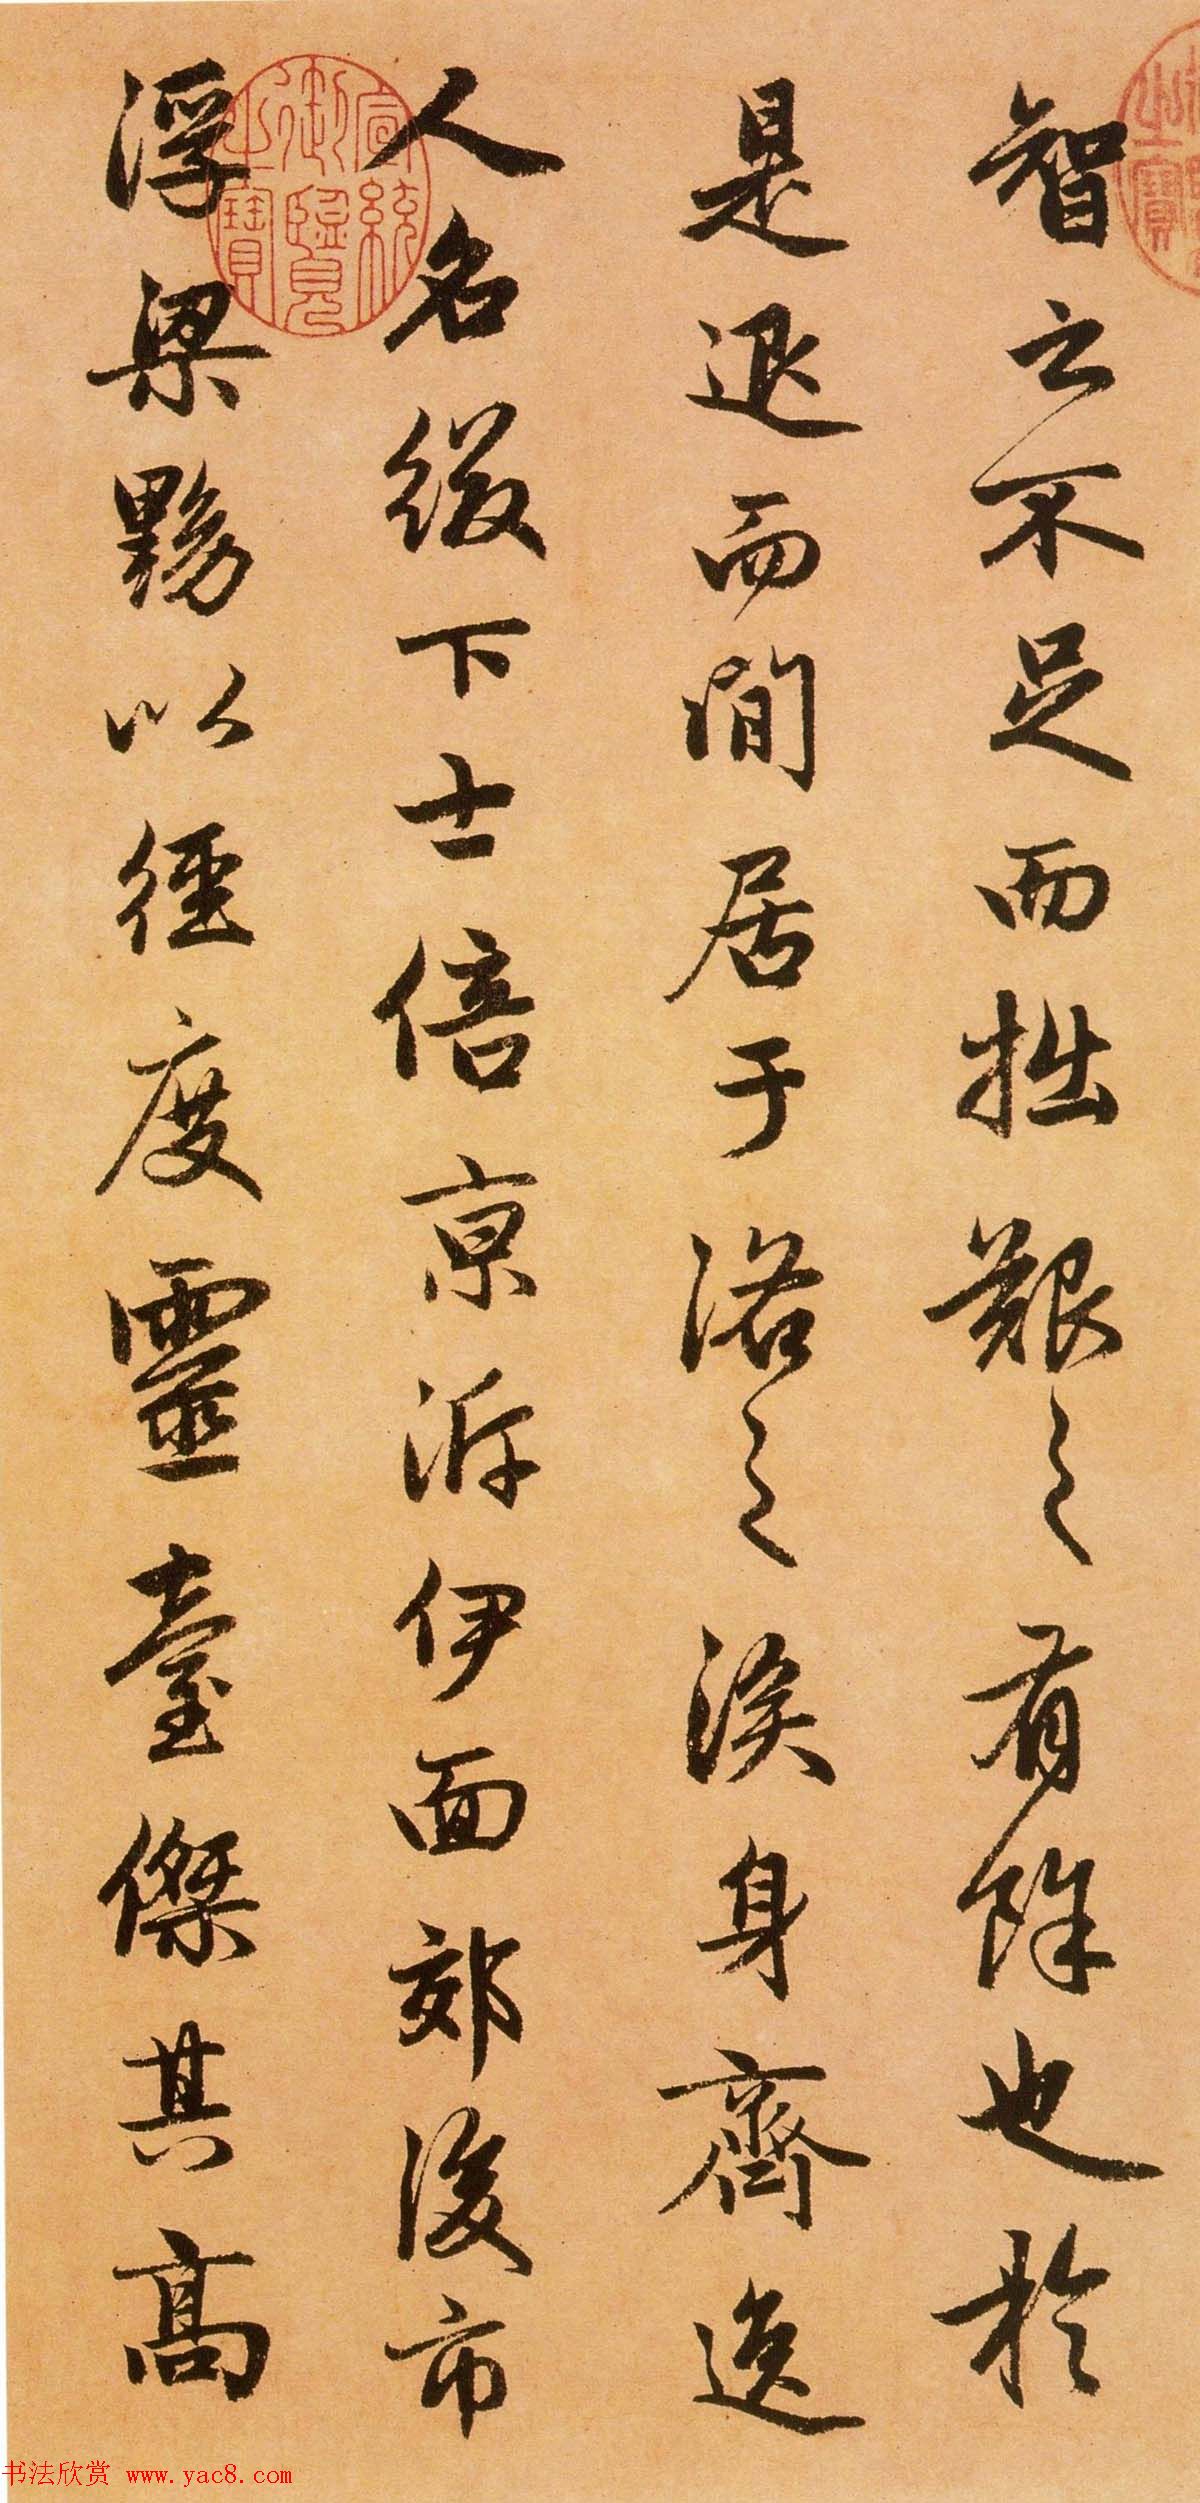 智之不足而拙艱之有餘也於
是退而閒居于洛之涘身齊逸
人名綴下士倍京泝伊面郊後市
浮梁黝以徑度靈臺傑其高
宣統御覽之寶
书法欣赏 www.yac8.com